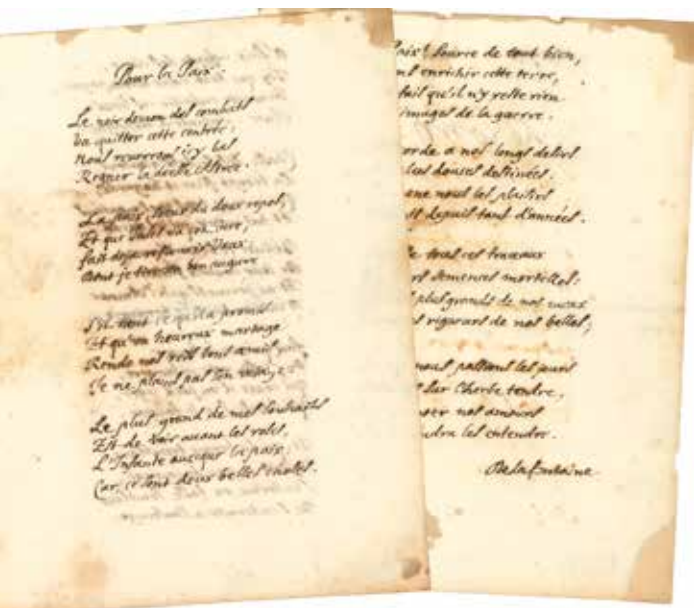 Pour la Paix.
Le noir demon des combats
Va quitter cette contrée;
Nous reverrons icy bas
Regner la déesse Astrée.
La paix soeur du doux repos,
Et que Jules va conclure,
fait deja refleurir Vaux
dont je tire un bon augure
S'il tient ce qu'il a promis
Et qu'un heureux mariage
Rende nos rois bons amis
Je ne plains pas son voyage.
Le plus grand de mes souhaits
Est de voir avant les roses,
L'Infante avecque la paix;
Car ce sont deux belles choses.
Paix! source de tout bien,
enrichir cette terre,
fait qu'il n'y reste rien
images de la guerre.
a nos longs desirs
douces destinées.
nous les plaisirs
depuis tant d'années.
tous ces travaux
semences mortelles:
plus grands de nos maux
rigueurs de nos belles;
nous passions les jours
sur l'herbe tendre,
nos amours
les entendre.
De la fontaine